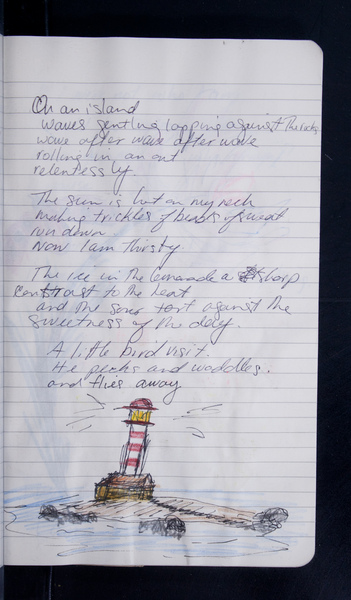 On an island
waves gently lapping against the rocks
wave after wave after wave
rolling in an out
relentessly.
The sun is hot on my neck
making trickles of beads of sweat
run down
Now I am thirsty.
The ice in the lemonade a sharp
contrast to the heat
and the sour tart against the
sweetness of the day.
A little bird visit.
He pecks and waddles.
and flies away